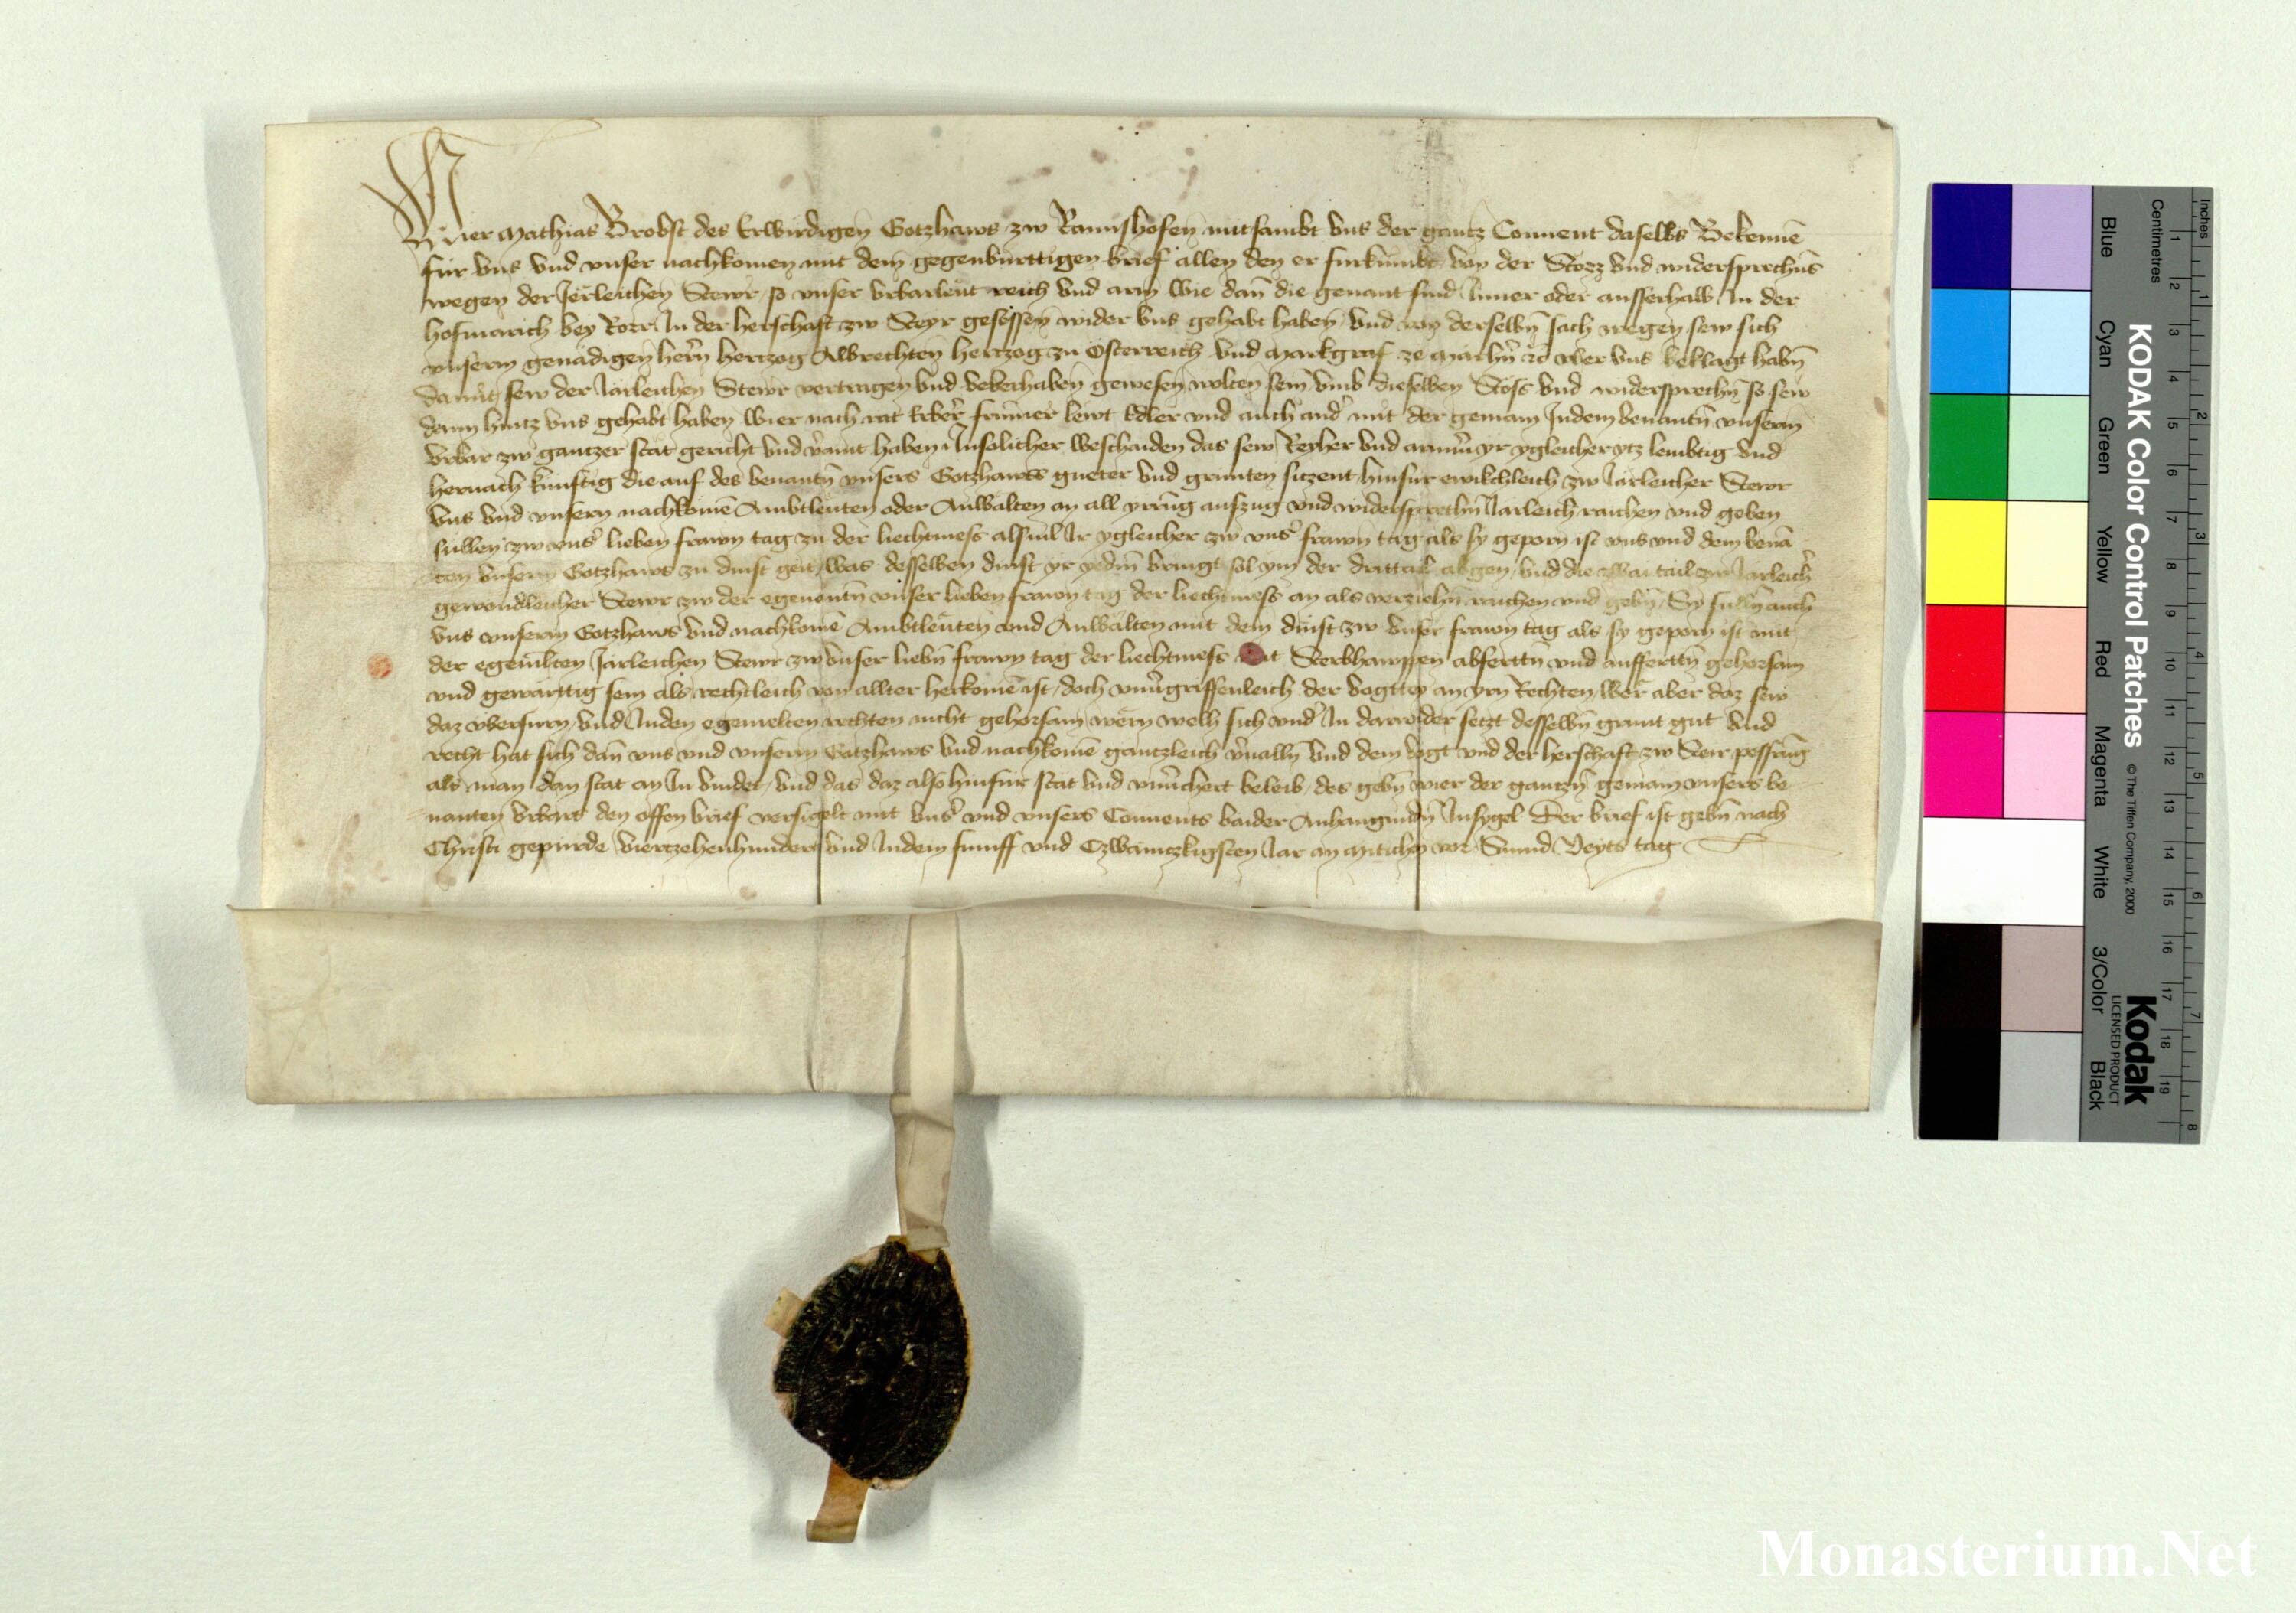 Wier Mathias Brobst des Erwirdigen Gotzhaws zw Rannshofen mitsambt vns der gantz Conuent daselbs Bekennē
für vns vnd vnser nachkomen mit dem gegenburttigen brief allen den er furkumbt von der Stozz vnd widersprechūs
wegen der Jerleichen Stewr so vnser vrbarleut reich vnd arm wie dan̄ die genant sind Inner oder ausserhalb In der
hofmarich bey Rorr In der herschaft zw Steyr gesessen wider vns gehabt haben vnd von derselbn̄ sach wegen sew sich
vnserm genädigen herrn hertzog Albrechten hertzog zu Osterreich vnd Markgraf ze Märhn̄ ꝛc vber vns beklagt habn̄
damit sew der Jarleichen Stewr vertragen vnd vberhaben gewesen wolten sein vmb dieselben Stöss vnd widersprechn̄ so sew
dann hintz vns gehabt haben wier nach rat erber frumer lewt Edler vnd auch and' mit der gemain Indem benantn̄ vnserm
vrbar zw gantzer stät gericht vnd v'aint haben Insolicher weschaiden das sew Reyher vnd armer yr ygleicher ytz lembtig vnd
hernach künftig die auf des benantn̄ vnsers Gotzhawss gueter vnd grunten sitzent hinfür ewikchleich zw Jarleicher Stewr
vns vnd vnsern nachkomē Ambtleuten oder Anwälten an all yrrūg aufzug vnd widersprechn̄ Jarleich raichen vnd geben
sullen zw vns' lieben frawn tag zu der liechtmess alsuil Ir ygleicher zw vns' frawn tag als sy geporn ist vns vnd dem benā
ten vnserm Gotzhaws zu dinst geit was desselben dinst yr yedm̄ bringt sol ym der drittail abgen vnd die zwai tail zw Jarleich'
gewondleicher Stewr zw der egenantn̄ vnser lieben frawn tag der liechtmess an als verziehn̄ raichen vnd gebn̄ Sy sulln̄ auch
vns vnserm Gotzhaws vnd nachkomē Ambtleuten vnd Anwälten mit dem dinst zw vnser frawn tag als sy geporn ist mit
der egemelten Jarleichen Stewr zw vnser liebn̄ frawn tag der liechtmess mit Sterbhawppen abferttn̄ vnd aufferttn̄ gehorsam
vnd gewärttig sein als rechtleich von allter herkomē ist doch vnu'griffenleich der vogttey an yrn Rechten wer aber daz sew
daz vberfurn vnd Inden egemelten rechten nicht gehorsam wern welh sich vnd' In darwider setzt desselbn̄ grunt gut vnd
recht hat sich dan̄ vns vnd vnserm Gotzhaws vnd nachkomē gantzleich v'ualln̄ vnd dem vogt vnd der herschaft zw Steir pessrūg
als man dan stat an In vindet vnd das daz also hinfür stät vnd vnu'chert beleib des gebn̄ wier der gantzn̄ gemain vnsers be
nanten vrbars den offen brief versigelt mit vns' vnd vnsers Conuents baider Anhangundn̄ Insygel Der brief ist gebn̄ nach
Christi gepürde Viertzehenhundert vnd Indem fumff vnd Czwaintzkigsten Jar an Mitichen vor Sannd Veyts tag
KODAK Color Control Patches
© The Tiffen Company, 2000
Kodak
LICENSED PRODUCT
Blue Cyan Green Yellow Red Magenta White 3/Color Black
Centimetres 1 2 3 4 5 6 7 8 9 10 11 12 13 14 15 16 17 18 19
Inches 1 2 3 4 5 6 7 8
Monasterium.Net